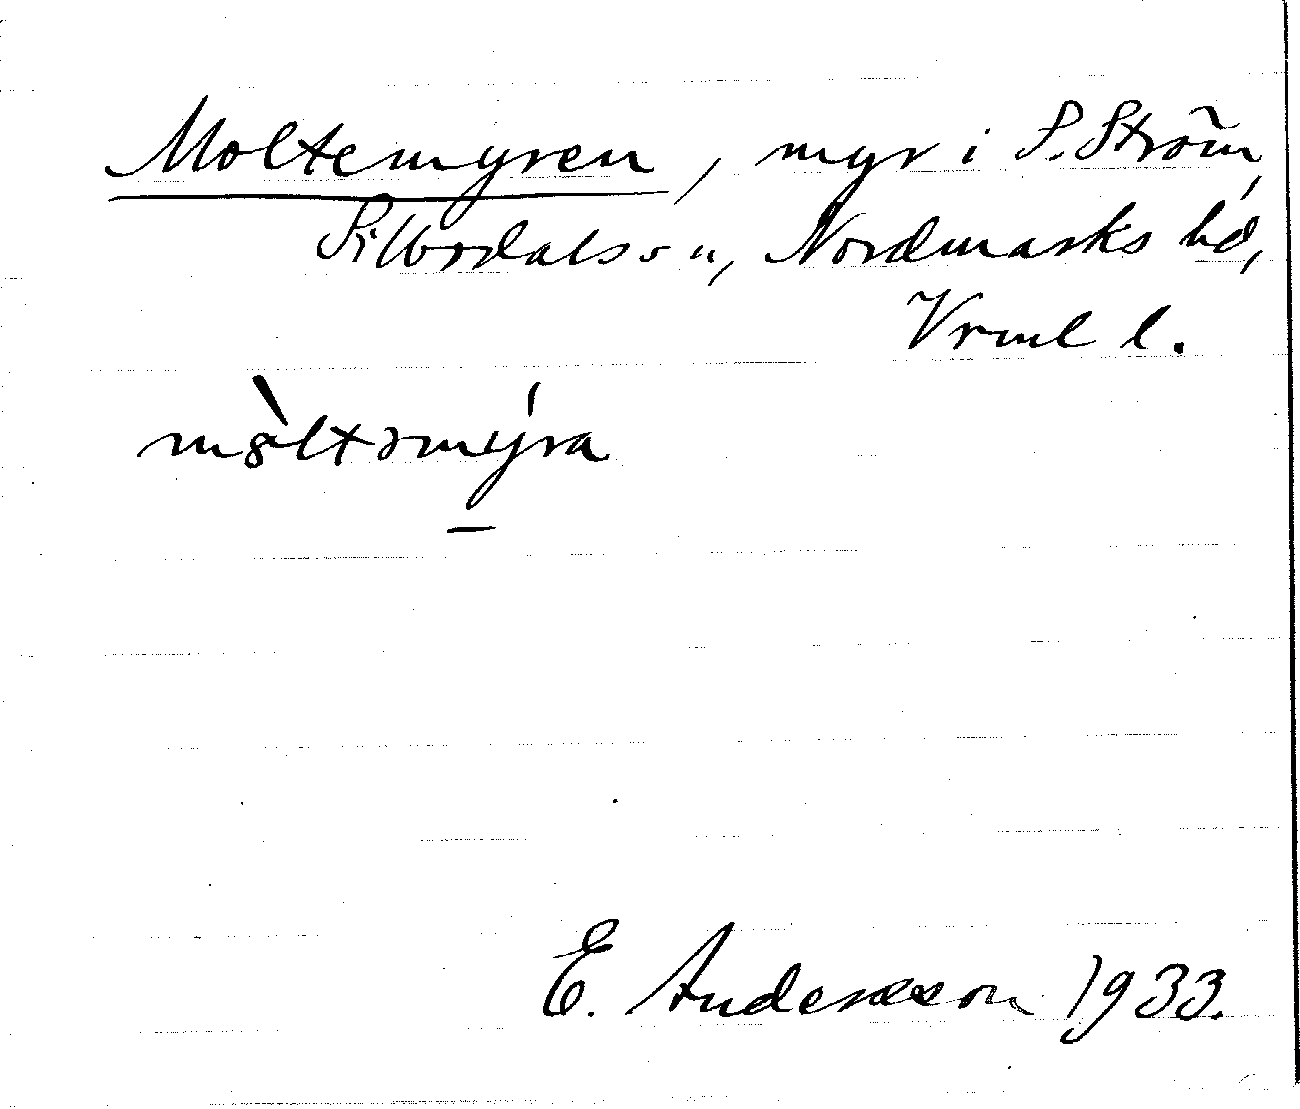 Moltemyren, myr i S. Ström,
Sillbodals sn, Nordmarks hd,
Vrml l.
mòltəmýra
E. Andersson 1933.